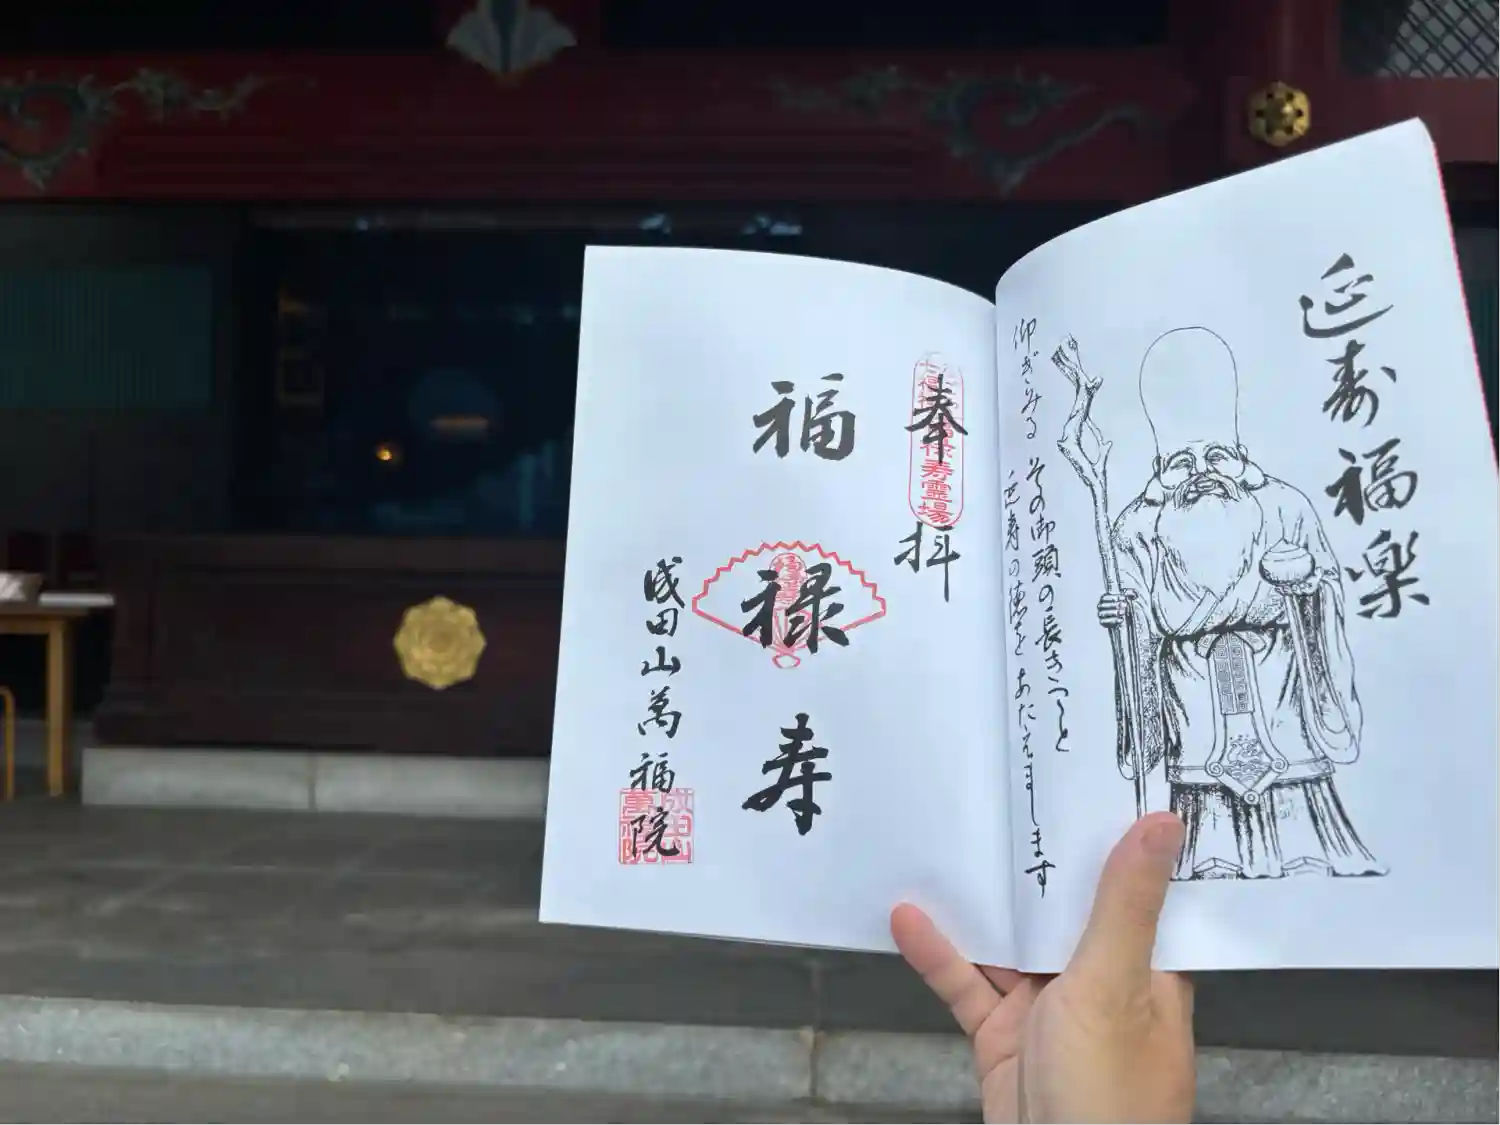 延寿福楽
仰ぎみる その御頭の長きこと
延寿の徳を あたえまします
奉拝
福禄寿霊場
福禄寿
成田山萬福院
成田山
萬福院